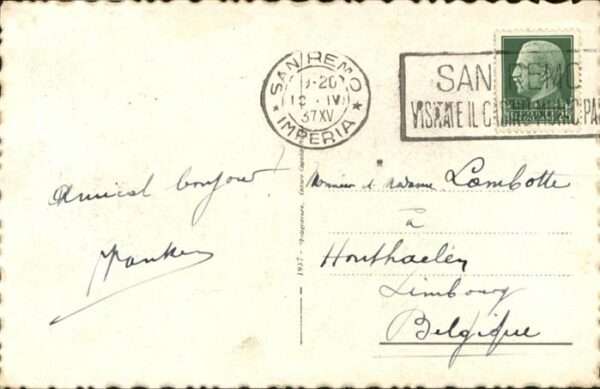 SAN REMO
19-20
12·IV
37XV
IMPERIA
SAN REMO
VISITATE IL CASINO MUNICIPA
Amical bonjour
Monsieur et Madame Lambotte
à
Houthaelen
Limbourg
Belgique
1937